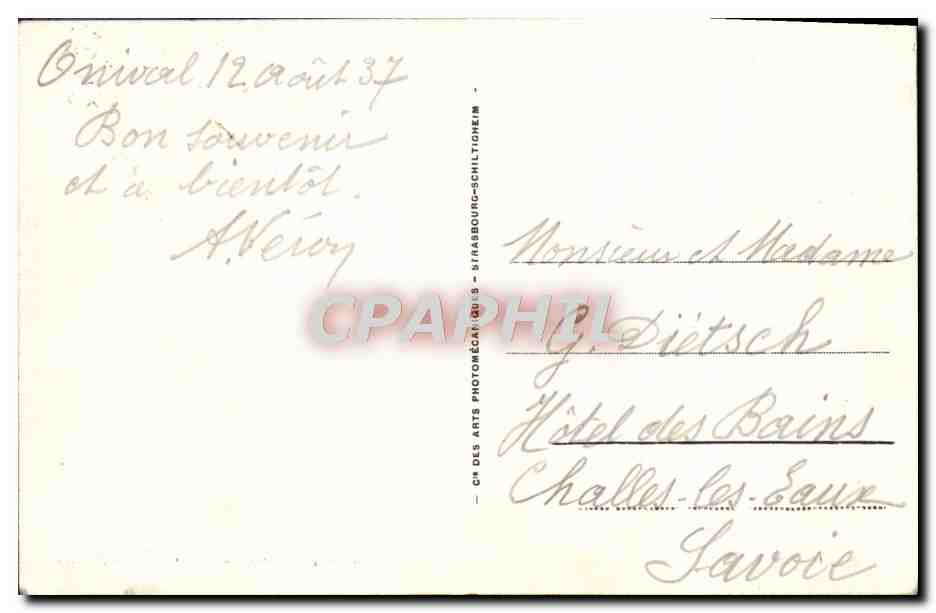 Onival 12 Août 37
Bon souvenir
et à bientôt.
A. Véroy
— Cie DES ARTS PHOTOMÉCANIQUES - STRASBOURG-SCHILTIGHEIM -
CPAPHIL
Monsieur et Madame
G. Diétsch
Hôtel des Bains
Challes-les-Eaux
Savoie